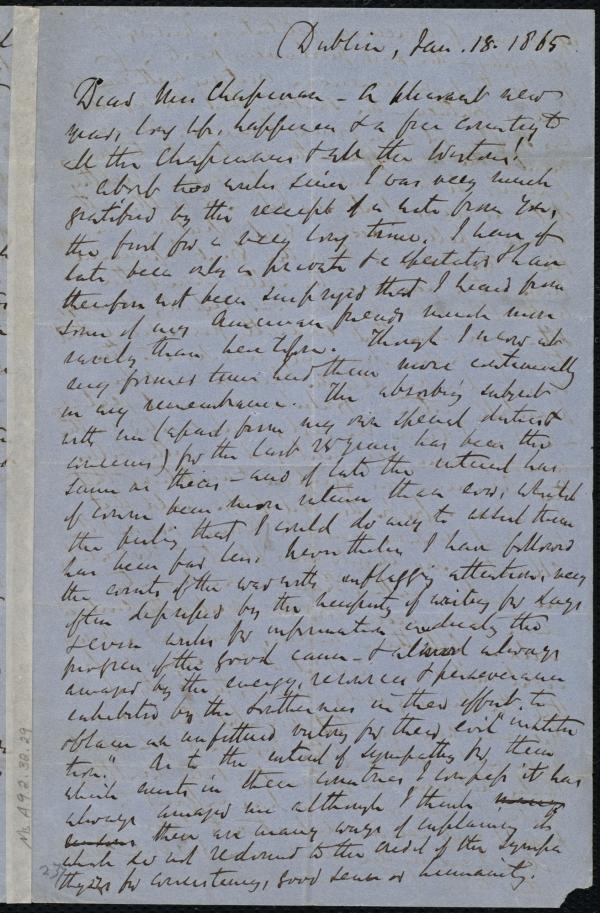 Dublin, Jan. 18. 1865
Dear Mrs Chapman - A pleasant new
year, long life, happiness & a free country to
all the Chapmans & all the Westons!
About two weeks since I was very much
gratified by the receipt of a note from you,
the first for a very long time. I have of
late been only a private & a spectator & have
therefore not been surprised that I heard from
some of my American friends much more
rarely than heretofore. Though I know at
my former time had them more continually
in my remembrance. The absorbing subject
with me (apart from my own special duties &
concerns) for the last 25 years has been the
same as theirs - and of late the interest has
of course been more intense than ever, whilst
the feeling that I could do any to assist them
has been far less. Nevertheless I have followed
the events of the war with unflagging attention, very
often depressed by the necessity of waiting for days
& even weeks for information indicating the
progress of the good cause - & almost always
amazed by the energy, resources & perseverance
exhibited by the Southerners in their effort to
obtain an unfettered victory for their evil "institu
tion." As to the extent of sympathy for them
which exists in these countries I confess it has
always amazed me although I think
there are many ways of explaining it
which do not redound to the credit of the sympa
thizers for consistency, good sense or humanity.
Ms. A.9.2.32.29